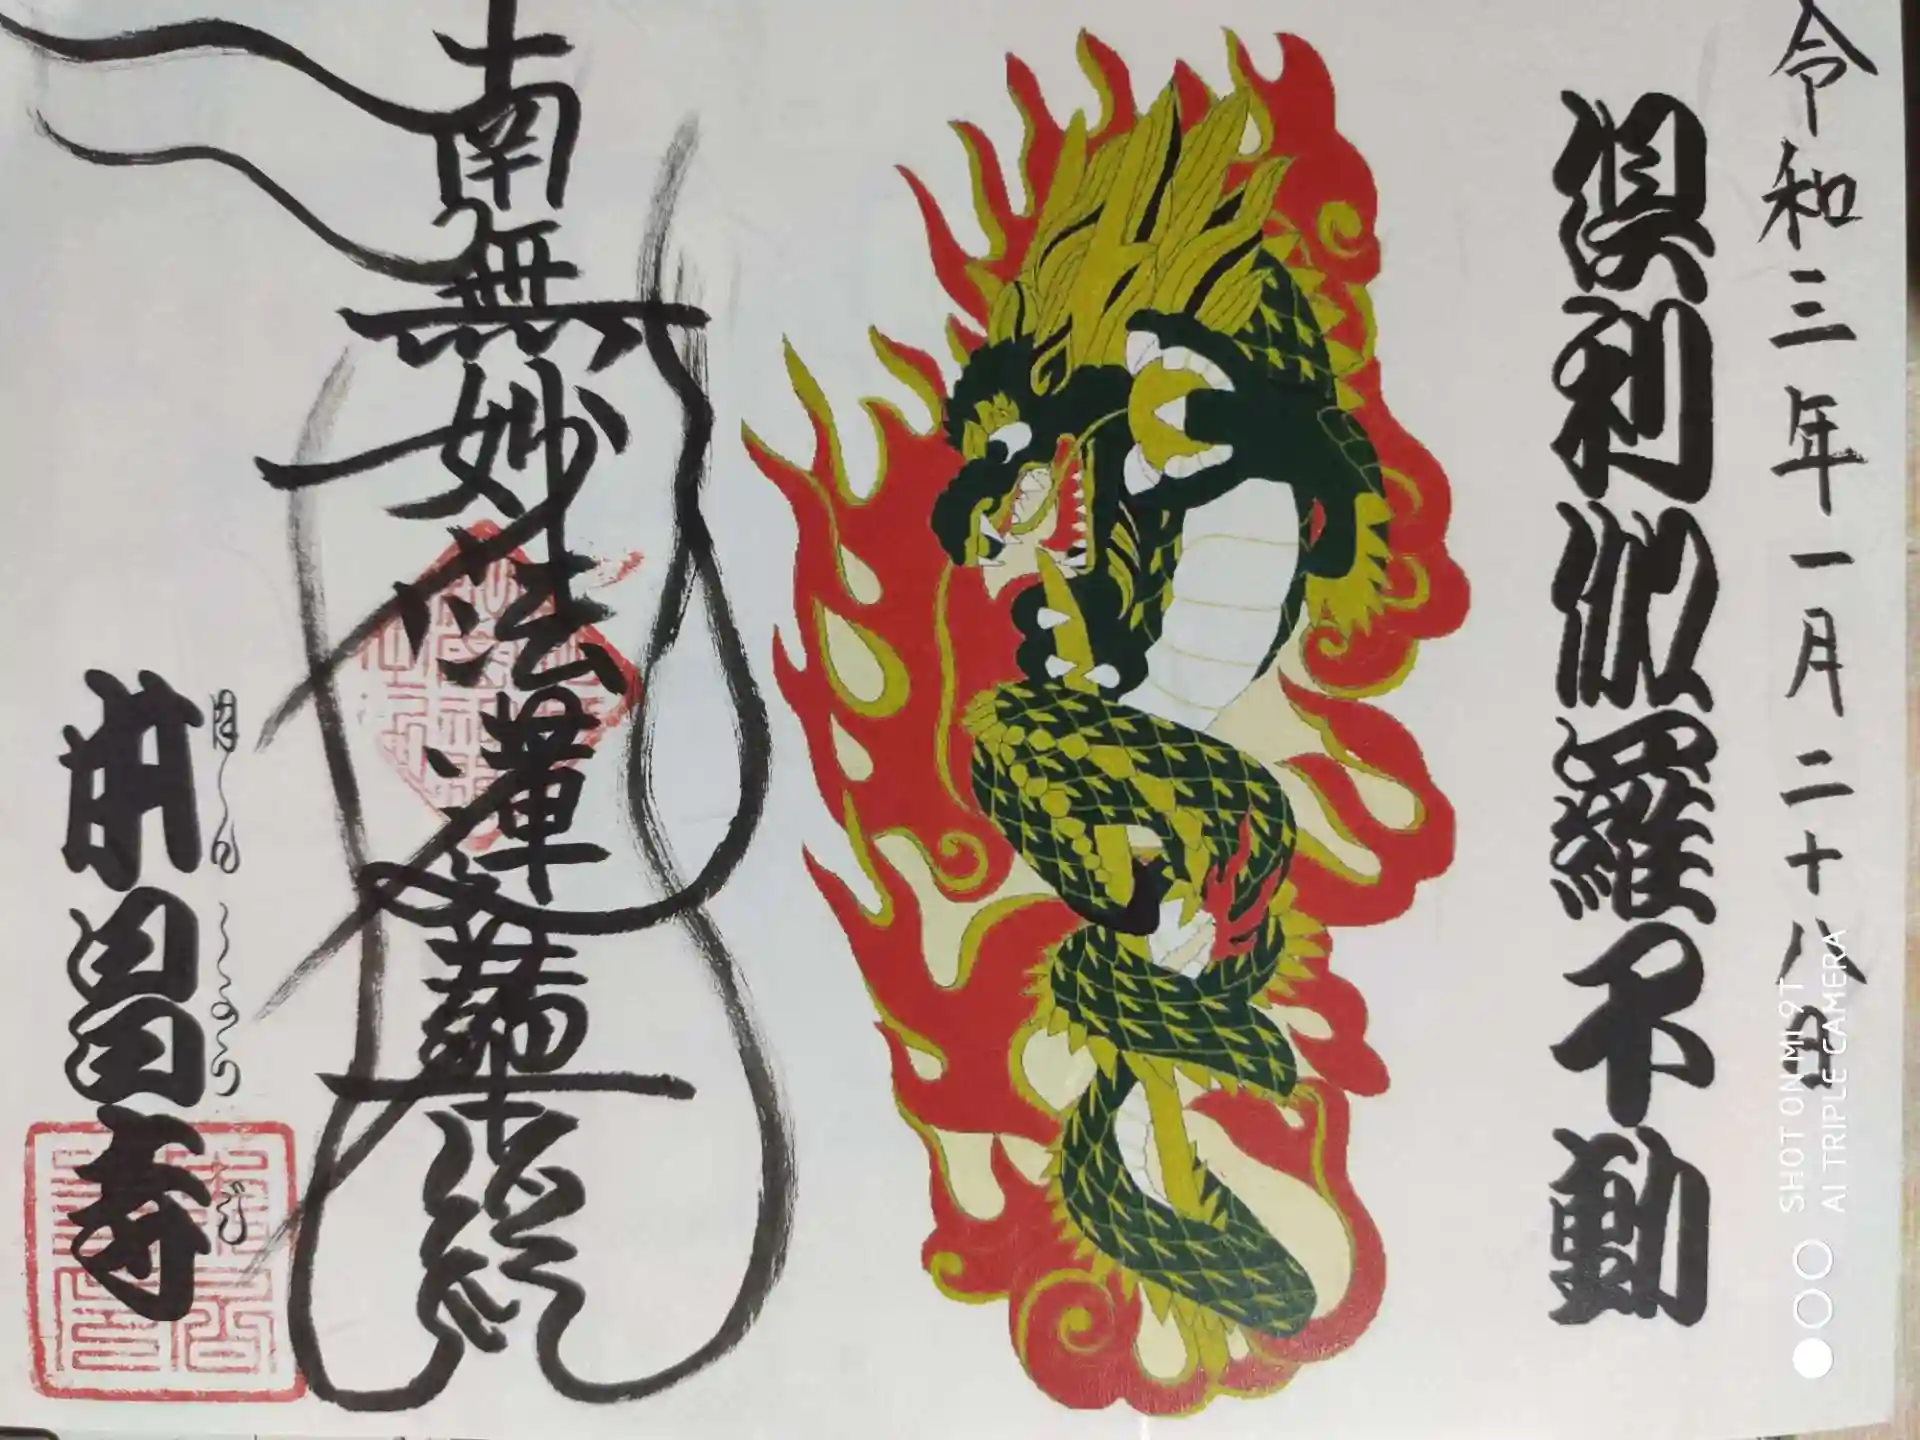 令和三年一月二十八日
倶利伽羅不動
南無妙法蓮華経
本昌寺
ほんしょうじ
SHOT ON MI 9T
AI TRIPLE CAMERA